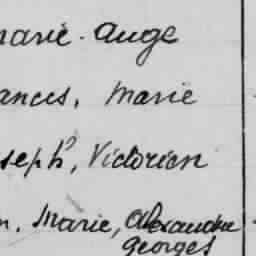 marie. Ange
ances, Marie
seph, Victorien
n, Marie, Alexandre
georges